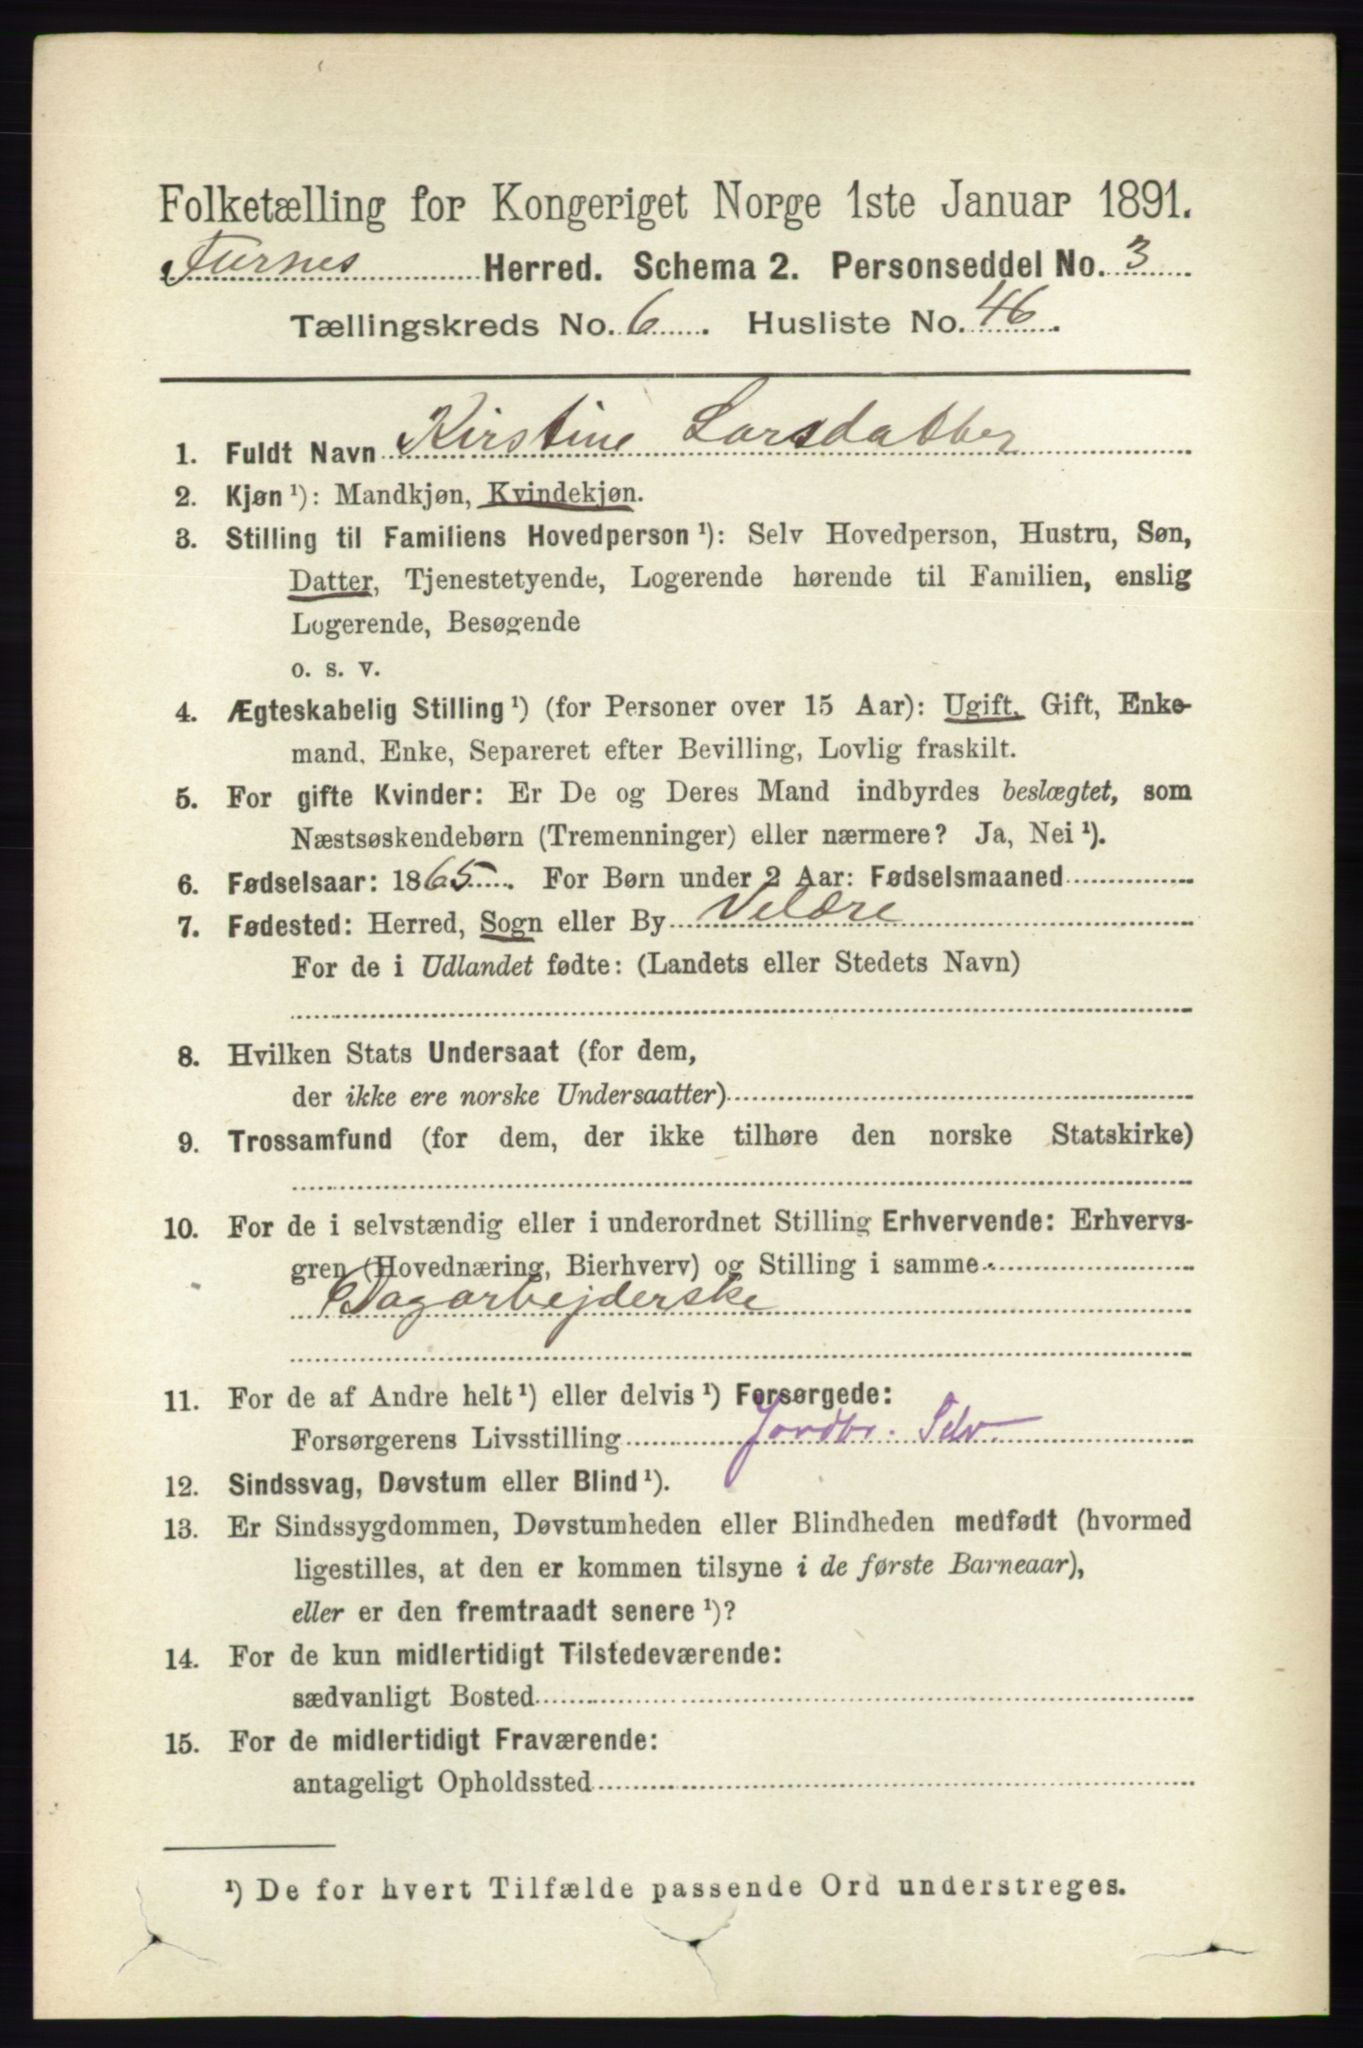 Folketælling for Kongeriget Norge 1ste Januar 1891.
Furnes Herred. Schema 2. Personseddel No. 3
Tællingskreds No. 6. Husliste No. 46.
1. Fuldt Navn Kirstine Larsdatter
2. Kjøn ¹): Mandkjøn, Kvindekjøn.
3. Stilling til Familiens Hovedperson ¹): Selv Hovedperson, Hustru, Søn,
Datter, Tjenestetyende, Logerende hørende til Familien, enslig
Logerende, Besøgende
o. s. v.
4. Ægteskabelig Stilling ¹) (for Personer over 15 Aar): Ugift, Gift, Enke-
mand, Enke, Separeret efter Bevilling, Lovlig fraskilt.
5. For gifte Kvinder: Er De og Deres Mand indbyrdes beslægtet, som
Næstsøskendebørn (Tremenninger) eller nærmere? Ja, Nei ¹).
6. Fødselsaar: 1865. For Børn under 2 Aar: Fødselsmaaned
7. Fødested: Herred, Sogn eller By Veldre
For de i Udlandet fødte: (Landets eller Stedets Navn)
8. Hvilken Stats Undersaat (for dem,
der ikke ere norske Undersaatter)
9. Trossamfund (for dem, der ikke tilhøre den norske Statskirke)
10. For de i selvstændig eller i underordnet Stilling Erhvervende: Erhvervs-
gren (Hovednæring, Bierhverv) og Stilling i samme
Dagarbejderske
11. For de af Andre helt ¹) eller delvis ¹) Forsørgede:
Forsørgerens Livsstilling Jordbr. Selv
12. Sindssvag, Døvstum eller Blind ¹).
13. Er Sindssygdommen, Døvstumheden eller Blindheden medfødt (hvormed
ligestilles, at den er kommen tilsyne i de første Barneaar),
eller er den fremtraadt senere ¹)?
14. For de kun midlertidigt Tilstedeværende:
sædvanligt Bosted
15. For de midlertidigt Fraværende:
antageligt Opholdssted
¹) De for hvert Tilfælde passende Ord understreges.